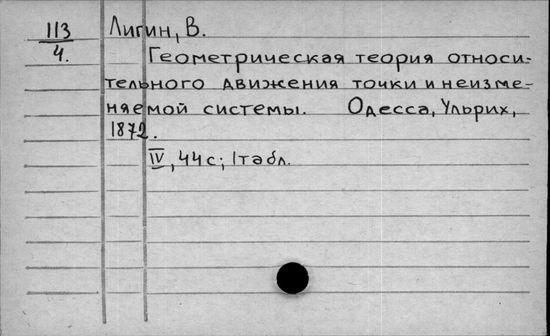 113 Лигин, В.
4. Геометрическая теория относи-
тельного движения точки и неизме-
няемой системы. Одесса, Ульрих,
1872.
IV, 44 с; 1 табл.